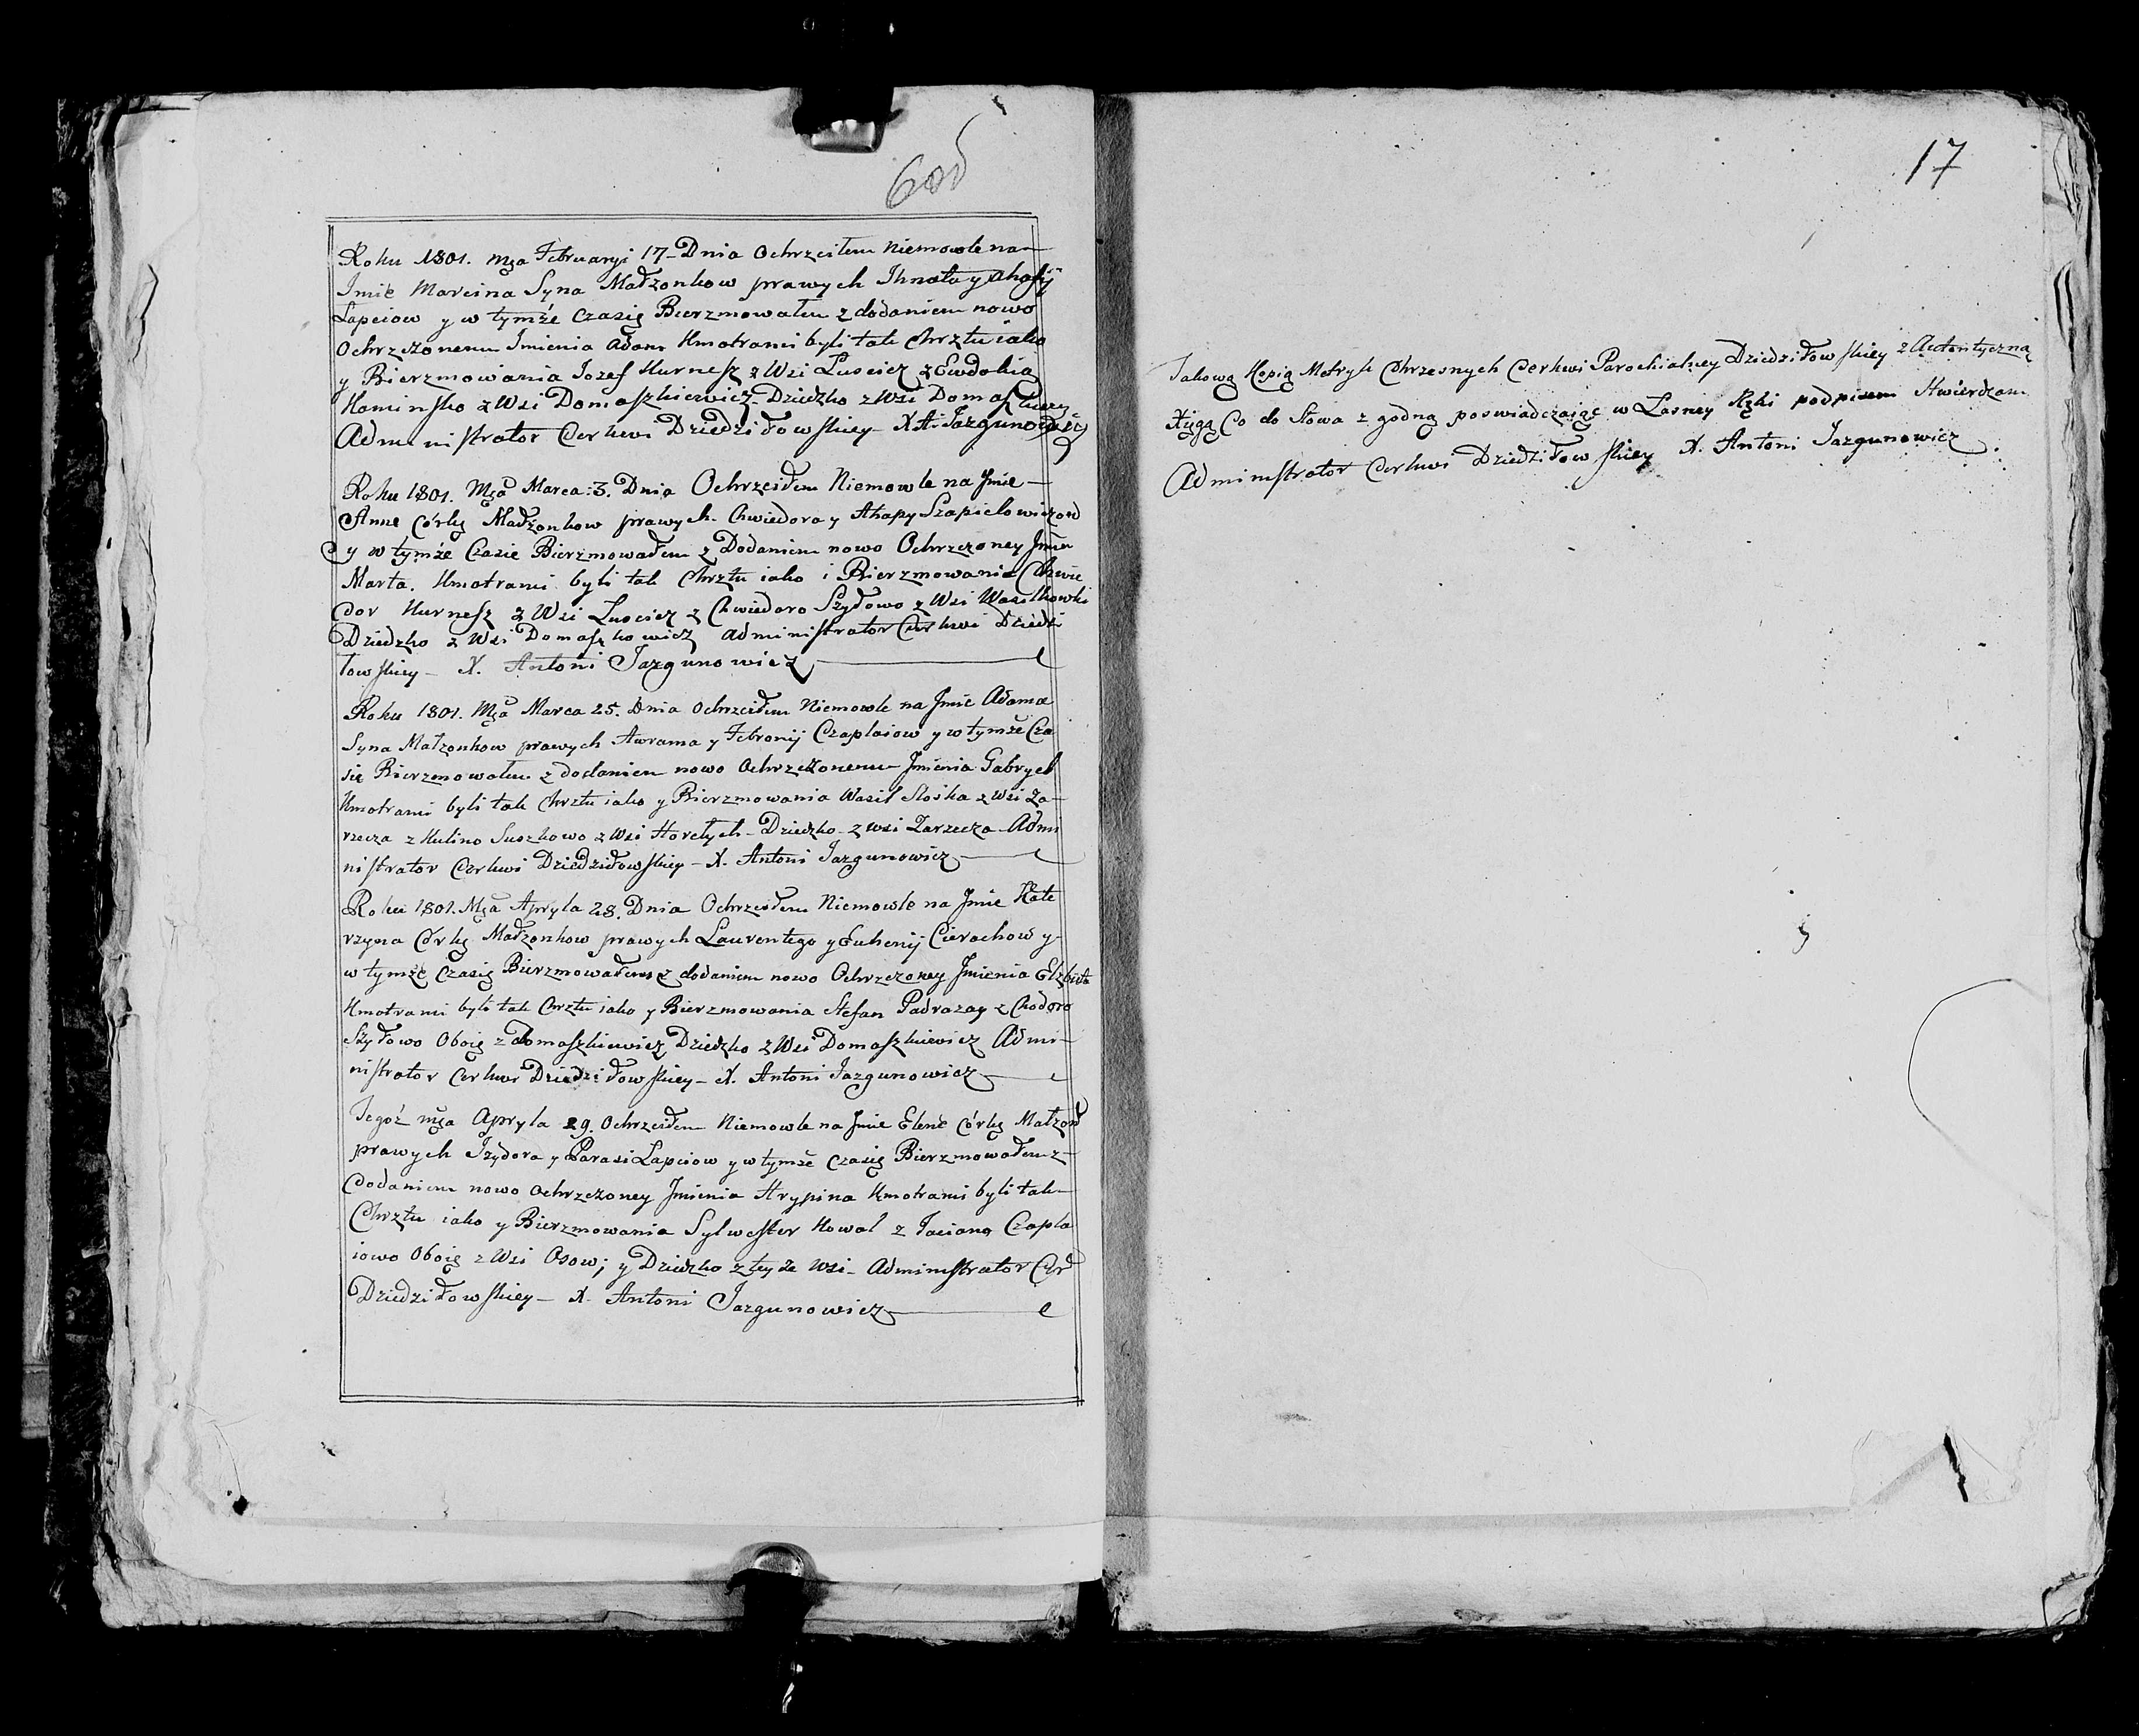 Roku 1801. Mça Februaryi 17 Dnia Ochrzciłem Niemowle na
Imie Marcina Syna Małżonkow prawych Ihnata y Ahafij
Łapciow y w tymże czasię Bierzmowałem z dodaniem nowo
Ochrzczonemu Imienia Adam Kmotrami byli tak Chrztu iako
y Bierzmowania Jozef Kurnesz z Wsi Lusicz z Ewdokią
Kominsko z Wsi Domaszkiewicz Dziedzko z Wsi Domaszkiewicz
Administrator Cerkwi Dziedziłowskiey X A: Jazgunowicz
Roku 1801. Mça Marca 3. Dnia Ochrzciłem Niemowle na Jmie
Anne Córkę Małżonkow prawych Chwiedora y Ahapy Szapielowiczow
y w tymże Czasie Bierzmowałem z Dodaniem nowo Ochrzczoney Jmien
Marta. Kmotrami byli tak Chrztu iako i Bierzmowania Chwie
dor Kurnesz z Wsi Lusicz z Chwiedoro Szydłowo z Wsi Wasilkowki
Dziedzko z Wsi Domaszkowicz Administrator Cerkwi Dziedzi
łowskiey – X. Antoni Jazgunowicz
Roku 1801. Mça Marca 25. Dnia Ochrzciłem Niemowle na Jmie Adama
Syna Małzonkow prawych Awrama y Febronij Czaplaiow y w tymże Cza
się Bierzmowałem z dodaniem nowo Ochrzczonemu Jmienia Gabryel
Kmotrami byli tak Chrztu iako y Bierzmowania Wasil Slośka z Wsi Za-
rzecza z Kulino Suszkowo z Wsi Horełych – Dziedzko z wsi Zarzecza Admi
nistrator Cerkwi Dziedziłowskiey – X. Antoni Jazgunowicz
Roku 1801. Mça Apryla 28. Dnia Ochrzciłem Niemowle na Jmie Kate
rzyna Córkę Małżonkow prawych Laurentego y Euhenij Cierachow y
w tymże czasię Bierzmowałem z dodaniem nowo Ochrzczoney Jmienia Elżbieta
Kmotrami byli tak Chrztu iako y Bierzmowania Stefan Padrazay z Chodoro
Szyłowo Oboię z Domaszkiewicz Dziedzko z Wsi Domaszkiewicz Admi-
nistrator Cerkwi Dziedziłowskiey – X. Antoni Jazgunowicz
Tegoż mça Apryla 29. Ochrzciłem Niemowle na Jmie Elenę Córkę Małzon
prawych Jzydora y Parasi Łapciow y w tymże czasię Bierzmowałem z
dodaniem nowo Ochrzczoney Jmienia Hrypina Kmotrami byli tak
Chrztu iako y Bierzmowania Sylwester Kowal z Taciana Czapla
iowo Oboię z Wsi Osow; y Dziedzko z teyże Wsi – Administrator Cer
Dziedziłowskiey – X. Antoni Jazgunowicz
17
Takową Kopią Metryk Chrzesnych Cerkwi Parochialney Dziedziłowskiey z Autentyczną
Xięgą Co do Słowa zgodną poswiadczaiąc w Łasney Ręki podpisem Stwierdzam
Administrator Cerkwi Dziedziłowskiey X. Antoni Jazgunowicz